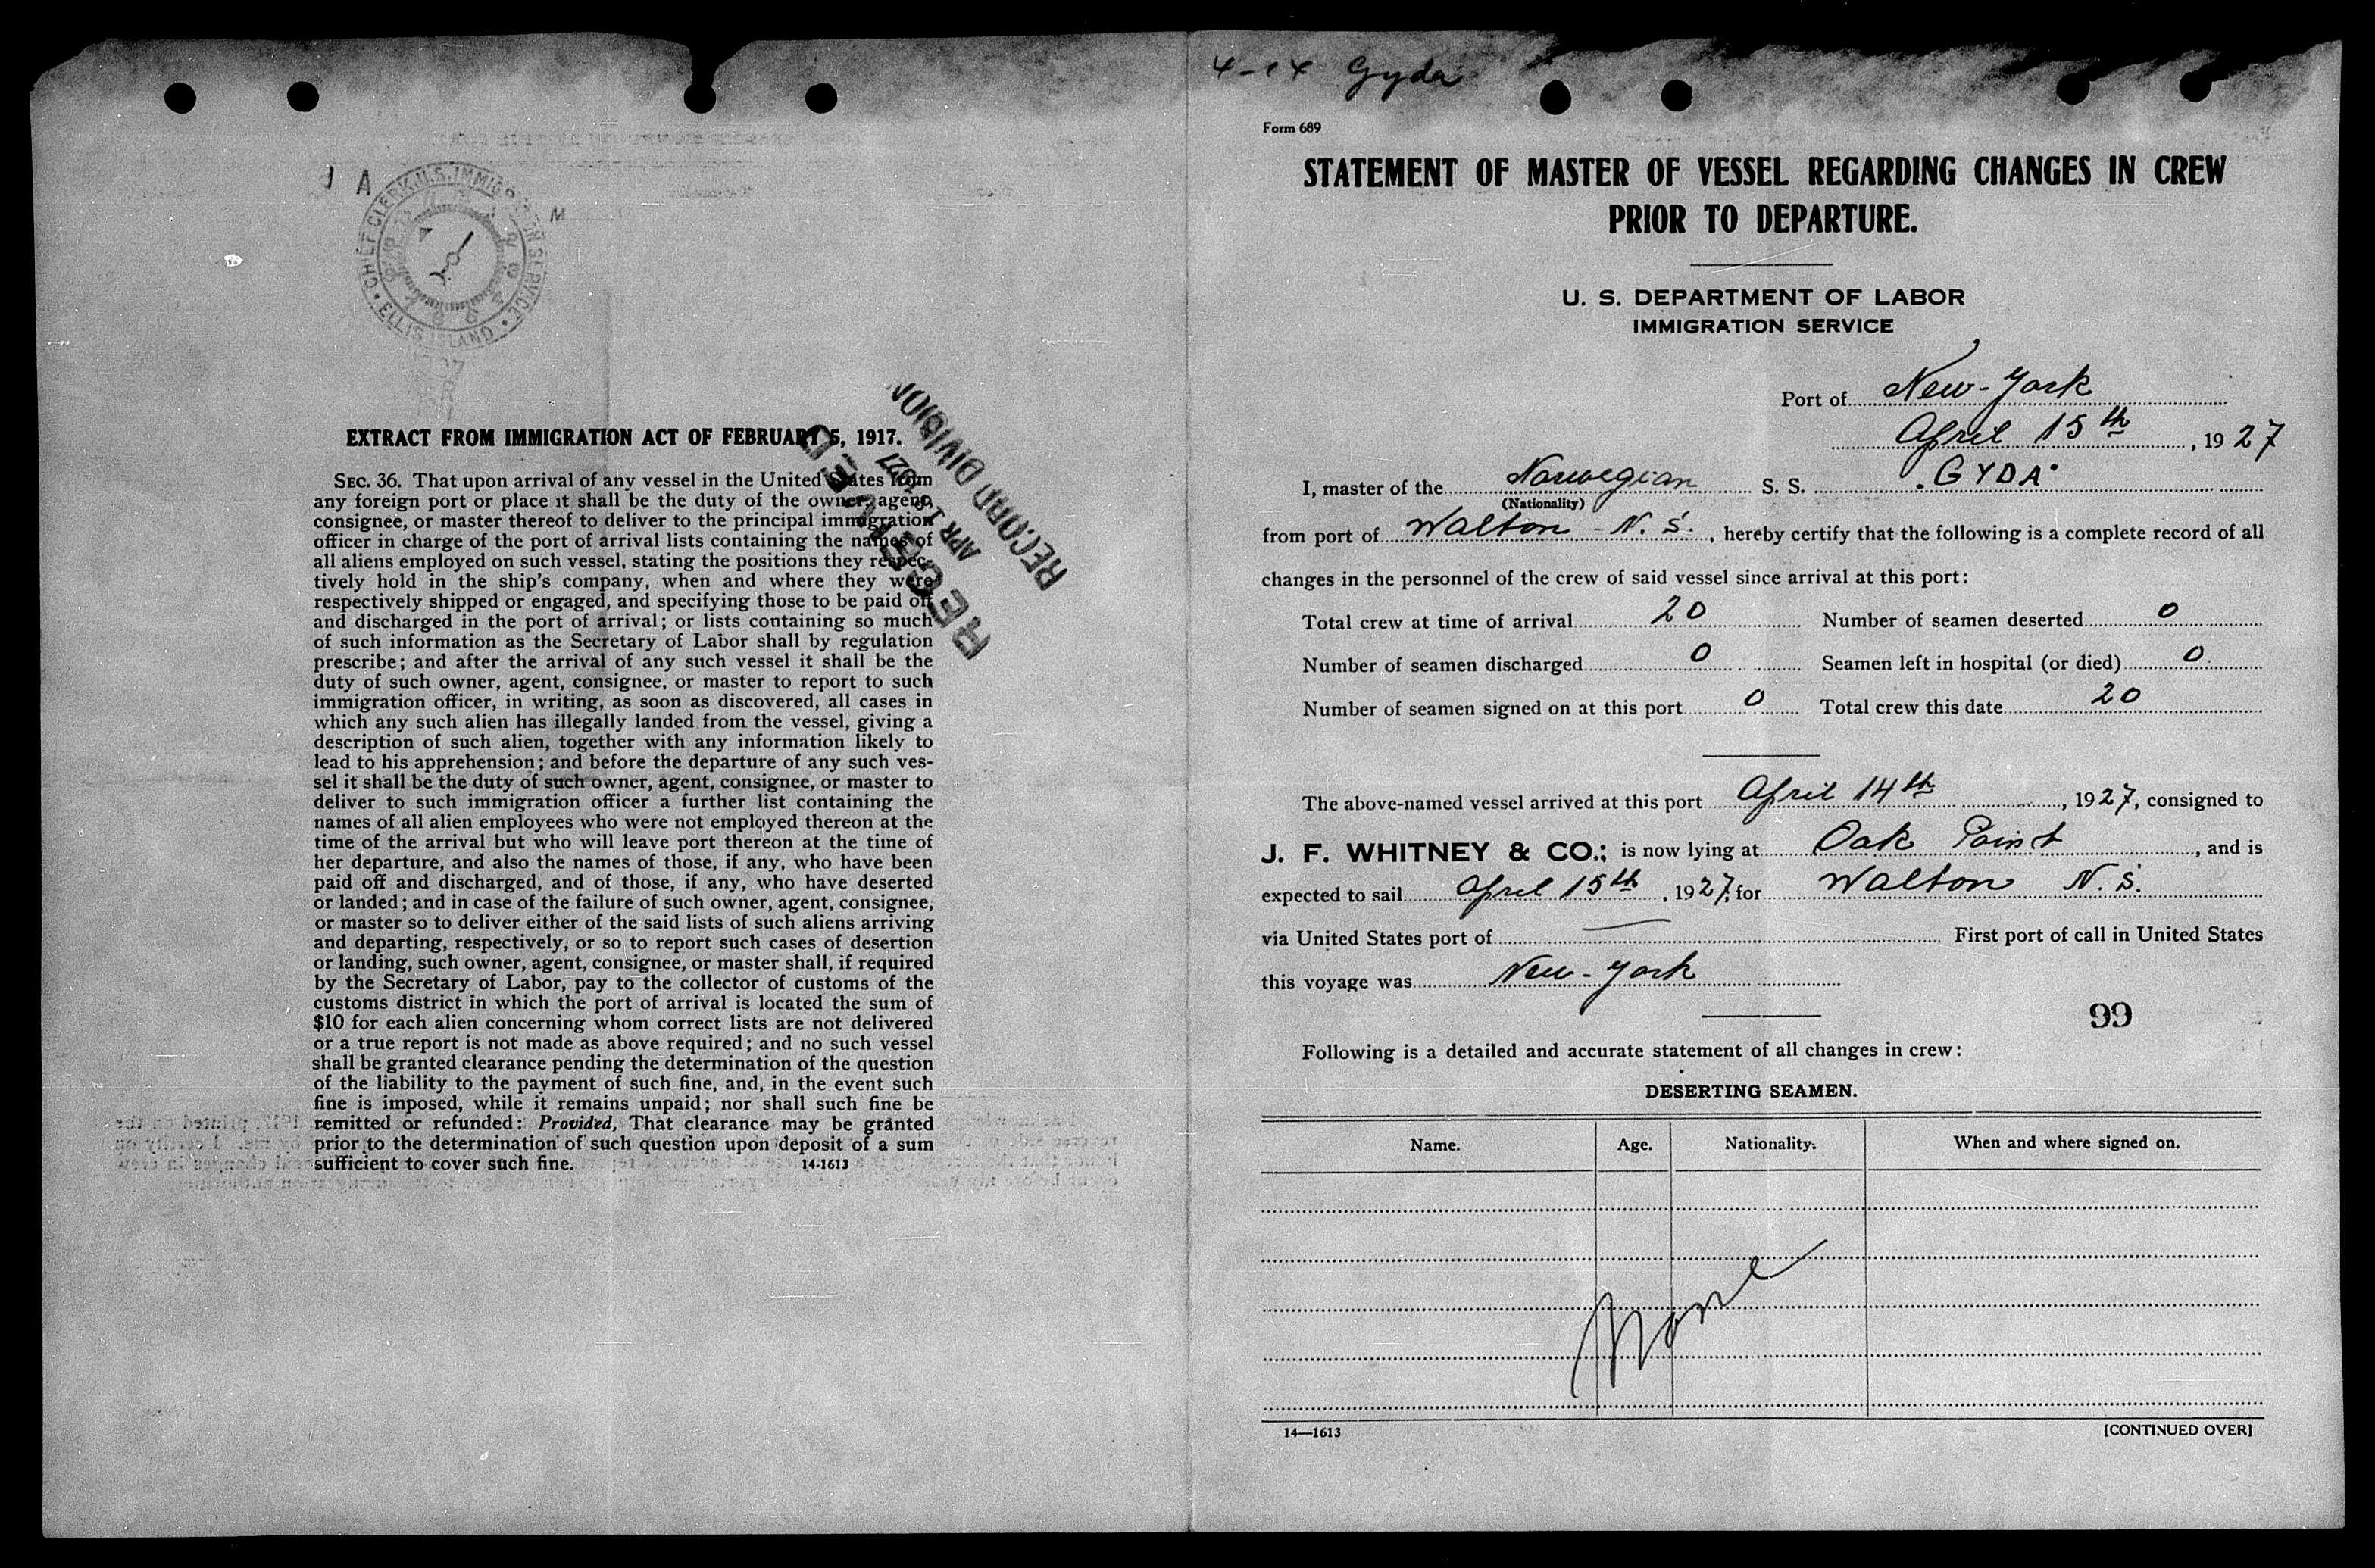 CHIEF CLERK, U.S. IMMIGRATION SERVICE
ELLIS ISLAND
RECEIVED
APR 1 1927
RECORD DIVISION
EXTRACT FROM IMMIGRATION ACT OF FEBRUARY 5, 1917.
SEC. 36. That upon arrival of any vessel in the United States from
any foreign port or place it shall be the duty of the owner, agent,
consignee, or master thereof to deliver to the principal immigration
officer in charge of the port of arrival lists containing the names of
all aliens employed on such vessel, stating the positions they respec-
tively hold in the ship's company, when and where they were
respectively shipped or engaged, and specifying those to be paid off
and discharged in the port of arrival; or lists containing so much
of such information as the Secretary of Labor shall by regulation
prescribe; and after the arrival of any such vessel it shall be the
duty of such owner, agent, consignee, or master to report to such
immigration officer, in writing, as soon as discovered, all cases in
which any such alien has illegally landed from the vessel, giving a
description of such alien, together with any information likely to
lead to his apprehension; and before the departure of any such ves-
sel it shall be the duty of such owner, agent, consignee, or master to
deliver to such immigration officer a further list containing the
names of all alien employees who were not employed thereon at the
time of the arrival but who will leave port thereon at the time of
her departure, and also the names of those, if any, who have been
paid off and discharged, and of those, if any, who have deserted
or landed; and in case of the failure of such owner, agent, consignee,
or master so to deliver either of the said lists of such aliens arriving
and departing, respectively, or so to report such cases of desertion
or landing, such owner, agent, consignee, or master shall, if required
by the Secretary of Labor, pay to the collector of customs of the
customs district in which the port of arrival is located the sum of
$10 for each alien concerning whom correct lists are not delivered
or a true report is not made as above required; and no such vessel
shall be granted clearance pending the determination of the question
of the liability to the payment of such fine, and, in the event such
fine is imposed, while it remains unpaid; nor shall such fine be
remitted or refunded: Provided, That clearance may be granted
prior to the determination of such question upon deposit of a sum
sufficient to cover such fine. 14-1613
4-14 Gyda
Form 689
STATEMENT OF MASTER OF VESSEL REGARDING CHANGES IN CREW
PRIOR TO DEPARTURE.
U. S. DEPARTMENT OF LABOR
IMMIGRATION SERVICE
Port of New-York
April 15th, 1927
I, master of the Norwegian S. S. "GYDA"
(Nationality)
from port of Walton N. S., hereby certify that the following is a complete record of all
changes in the personnel of the crew of said vessel since arrival at this port:
Total crew at time of arrival 20 Number of seamen deserted 0
Number of seamen discharged 0 Seamen left in hospital (or died) 0
Number of seamen signed on at this port 0 Total crew this date 20
The above-named vessel arrived at this port April 14th, 1927, consigned to
J. F. WHITNEY & CO.; is now lying at Oak Point, and is
expected to sail April 15th, 1927, for Walton N. S.
via United States port of — First port of call in United States
this voyage was New-York
99
Following is a detailed and accurate statement of all changes in crew:
DESERTING SEAMEN.
Name. Age. Nationality. When and where signed on.
None
14—1613 [CONTINUED OVER]